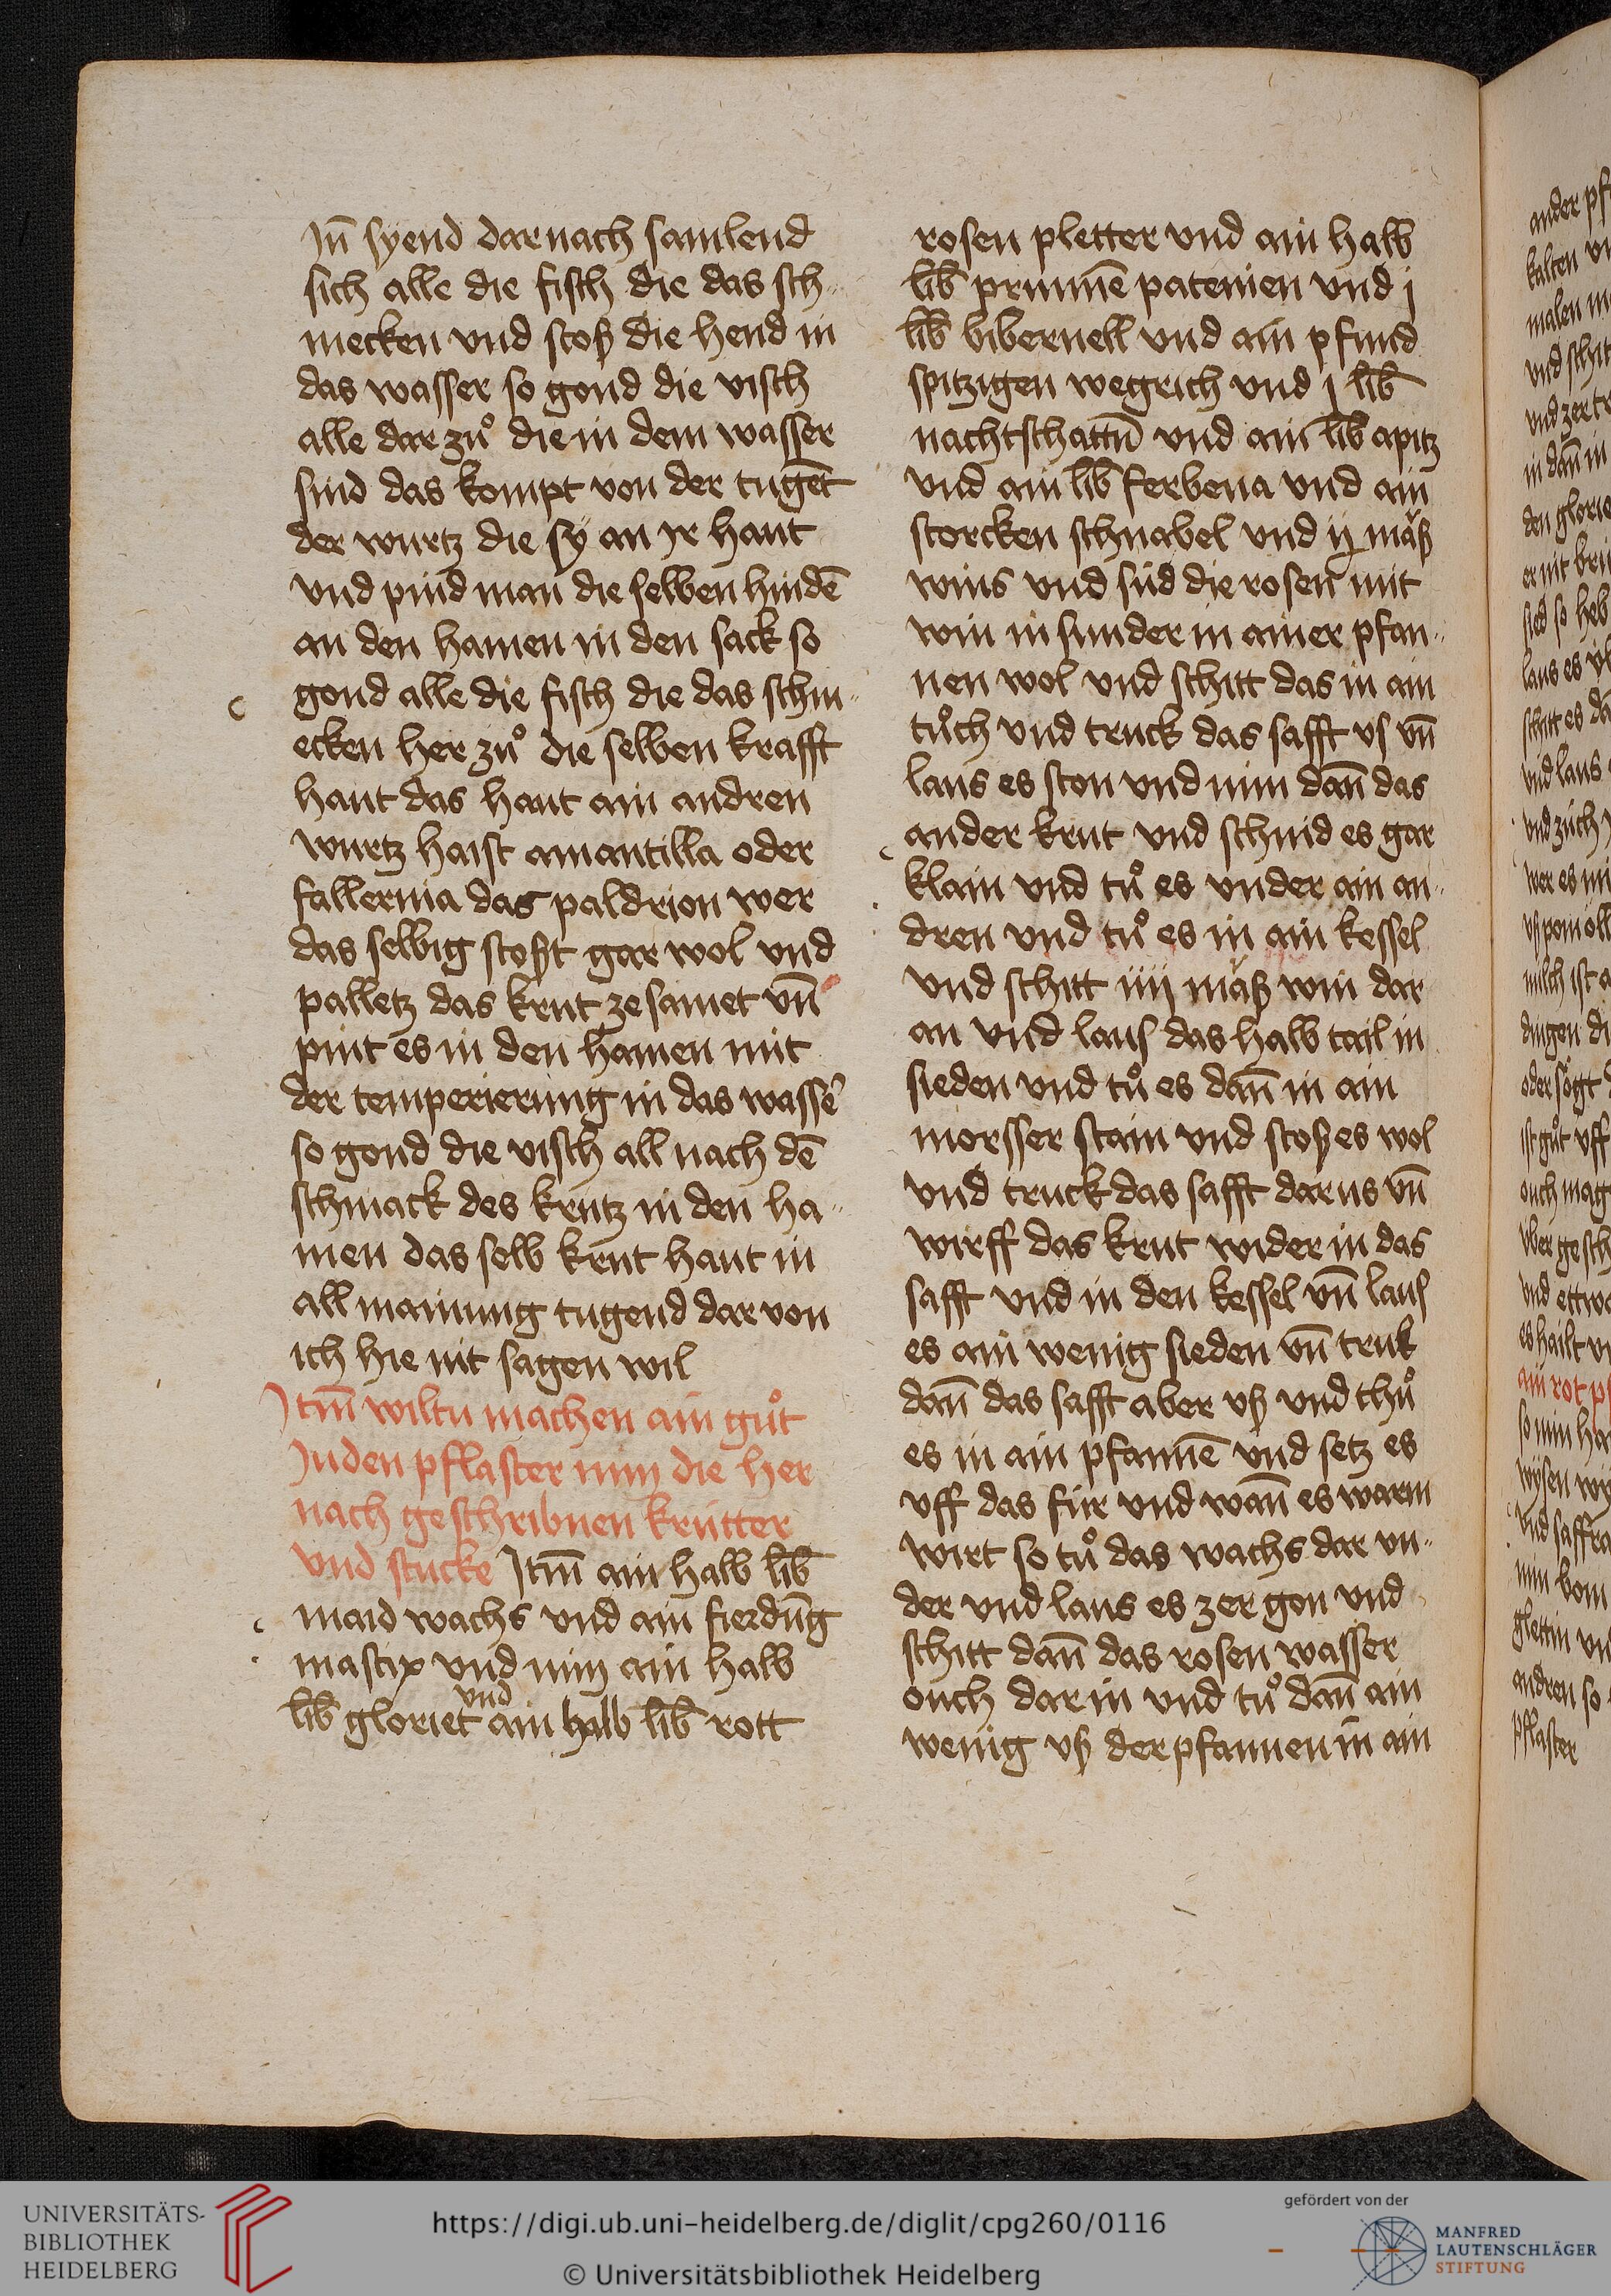 Jn̄ syend dar nach samlend
sich alle die fisch die das sch„
mecken vnd stoß die hend in
das wasser so gond die visch
alle dar zuͦ die in dem wasser
sind das kompt von der tugēt
der wurtz die sÿ an jr hant
vnd pind man die selben hindē
an den hamen in den sack so
gond alle die fisch die das schm„
ecken her zuͦ die selben krafft
haut das haut ain andren
wurtz haist amantilla oder
fallerina das paldrion wer
das selbig stoßt gar wol vnd
palletz das krut ze samet vn̄
pint es in den hamen mit
der temperierung in das wasse͛
so gond die visch all nach dē
schmack des krutz in den ha„
men das selb krut haut in
all mainung tugend dar von
ich hie nit sagen wil
Jtm̄ wiltu machen ain guͦt
Juden pflaster nim die her
nach geschribnen krútter
vnd stucke Jtm̄ ain halb lib̄
maid wachs vnd ain fierdūg
mastix vnd nim ain halb
vnd
lib̄ gloriet ain halb lib̄ rott
rosen pletter vnd ain halb
lib̄ prunnē patenien vnd j
lib̄ bibernell vnd ain pfund
spitzigen wegrich vnd j lib̄
nachtschattn̄ vnd ain lib̄ apitz
vnd ain lib̄ ferbena vnd ain
storcken schnabel vnd ij mǎß
wins vnd súd die rosen mit
win in sunder in ainer pfan„
nen wol vnd schitt das in ain
tuͦch vnd truck das safft vs vn̄
laus es ston vnd nim dan̄ das
ander krut vnd schnid es gar
klain vnd tuͦ es vnder ain an„
dren vnd tuͦ es in ain kessel
vnd schitt iiij mǎß win dar
an vnd laus das halb tail in
sieden vnd tuͦ es dan̄ in ain
morsser stain vnd stoß es wol
vnd truck das safft darus vn̄
wirff das krut wider in das
safft vnd in den kessel vn̄ laus
es ain wenig sieden vn̄ truk
dan̄ das safft aber vß vnd thuͦ
es in ain pfannē vnd setz es
vff das fúr vnd wan̄ es warm
wirt so tuͦ das wachs dar vn„
der vnd laus es zer gon vnd
schitt dan̄ das rosen wasser
ouch dar in vnd tuͦ dan̄ ain
wenig vß der pfannen in ain
ander pf
kalten vn
malen
vnd schit
vnd zertr
in dan̄ in
den glorie
er nit bri
sied so heb
laus es
schitt es
vnd laus
vnd zúch
wer es
milch ist
dingen di
oder
ist guͦt vff
ouch mag
vber gesch
vnd ettwa
es hailt
ain rot
so nim
wysen
vnd saffra
nim bom
andren so
pflaster
UNIVERSITÄTS-
BIBLIOTHEK
HEIDELBERG
https://digi.ub.uni-heidelberg.de/diglit/cpg260/0116
© Universitätsbibliothek Heidelberg
gefördert von der
MANFRED
LAUTENSCHLÄGER
STIFTUNG